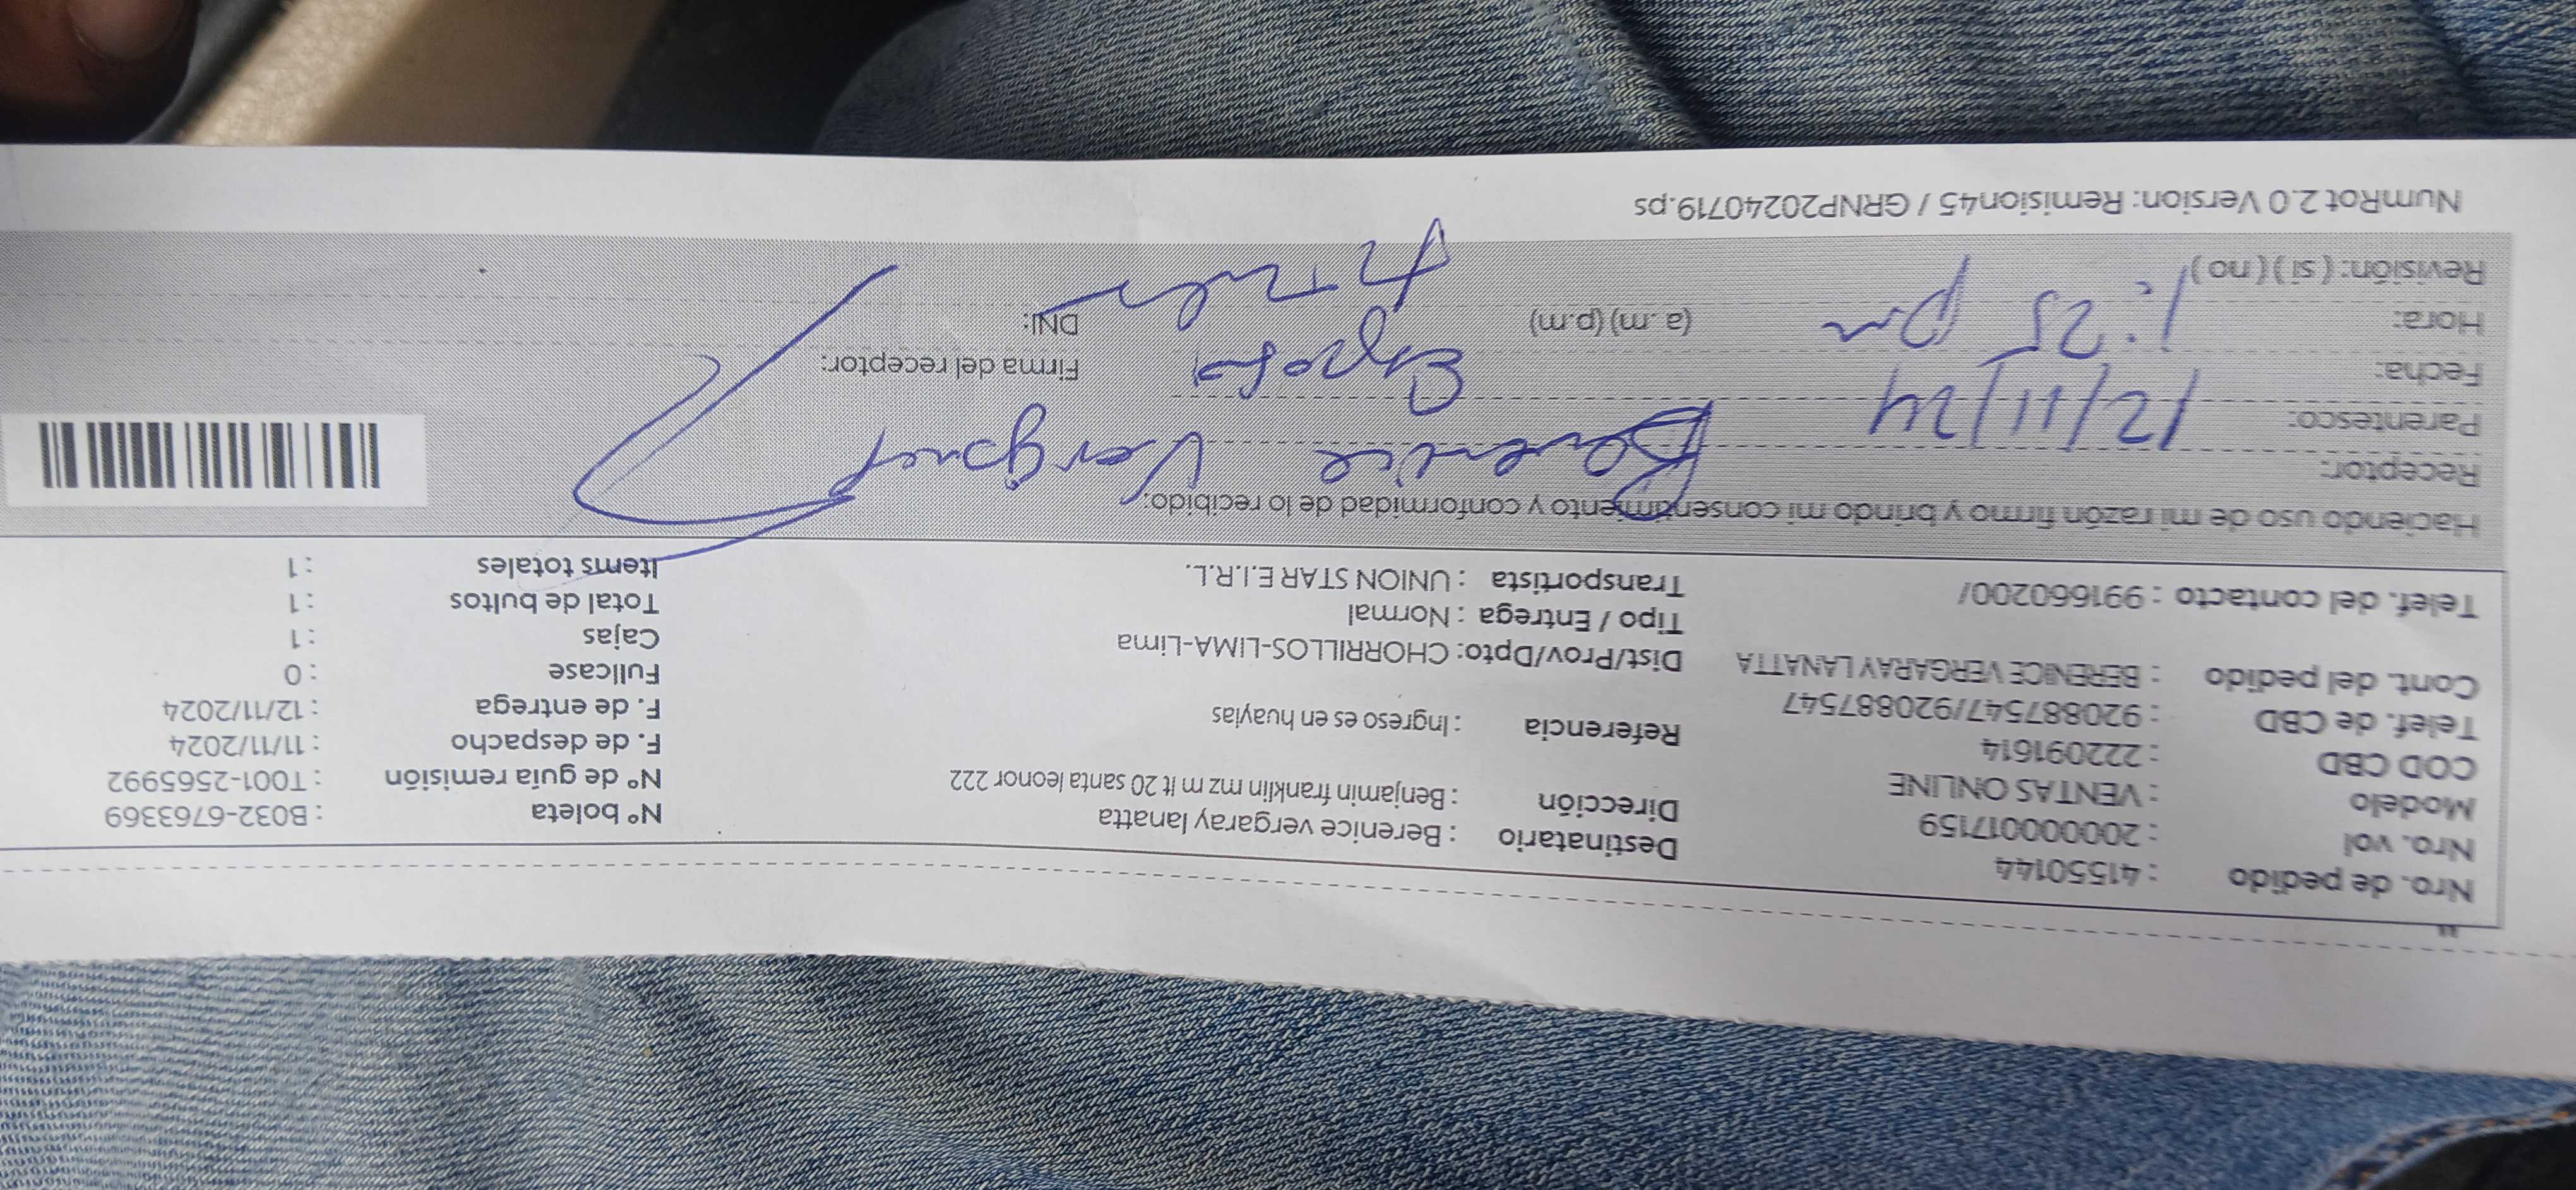 Nro. de pedido : 41550144
Nro. vol : 20000017159
Modelo : VENTAS ONLINE
COD CBD : 222091614
Telef. de CBD : 920887547/920887547
Cont. del pedido : BERENICE VERGARAY LANATTA
Telef. del contacto : 991660200/
Destinatario : Berenice vergaray lanatta
Dirección : Benjamin franklin mz m lt 20 santa leonor 222
Referencia : Ingreso es en huaylas
Dist/Prov/Dpto: CHORRILLOS-LIMA-Lima
Tipo / Entrega : Normal
Transportista : UNION STAR E.I.R.L.
N° boleta : B032-6763369
N° de guía remisión : T001-2565992
F. de despacho : 11/11/2024
F. de entrega : 12/11/2024
Fullcase : 0
Cajas : 1
Total de bultos : 1
Items totales : 1
Haciendo uso de mi razón firmo y brindo mi consentimiento y conformidad de lo recibido.
Receptor: Berenice
Parentesco:
Fecha: 12/11/24
Firma del receptor:
Hora: 1:25 pm (a .m) (p.m)
DNI:
Revisión: ( si ) ( no )
NumRot 2.0 Version: Remision45 / GRNP20240719.ps